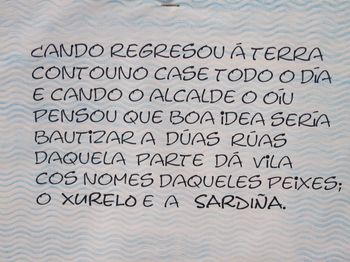 CANDO REGRESOU Á TERRA
CONTOUNO CASE TODO O DÍA
E CANDO O ALCALDE O OÍU
PENSOU QUE BOA IDEA SERÍA
BAUTIZAR A DÚAS RÚAS
DAQUELA PARTE DÁ VILA
COS NOMES DAQUELES PEIXES;
O XURELO E A SARDIÑA.